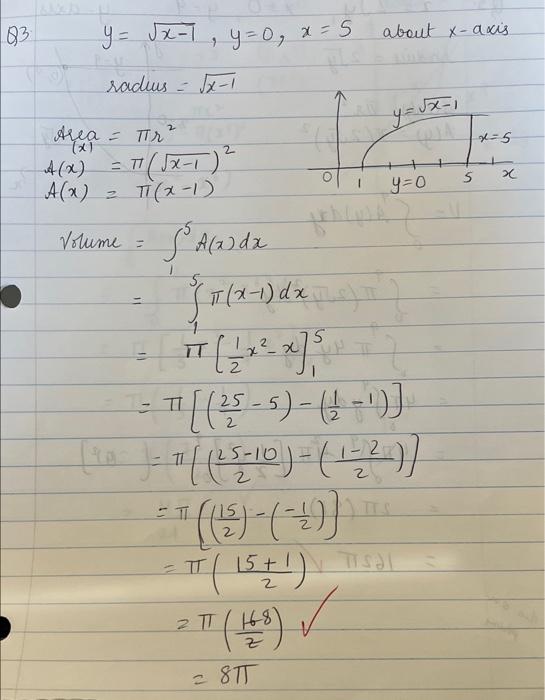 Q3 y = √x-1 , y=0, x = 5 about x-axis
radius = √x-1
Area = πr²
(x)
A(x) = π(√x-1)²
A(x) = π(x-1)
y=√x-1
x=5
0 1 y=0 5 x
Volume = ∫₁⁵ A(x)dx
= ∫₁⁵ π(x-1)dx
= π[1/2 x² - x]₁⁵
= π[(25/2 - 5) - (1/2 - 1)]
= π[(25-10/2) - (1-2/2)]
= π[(15/2) - (-1/2)]
= π(15+1/2)
= π(168/2) ✓
= 8π